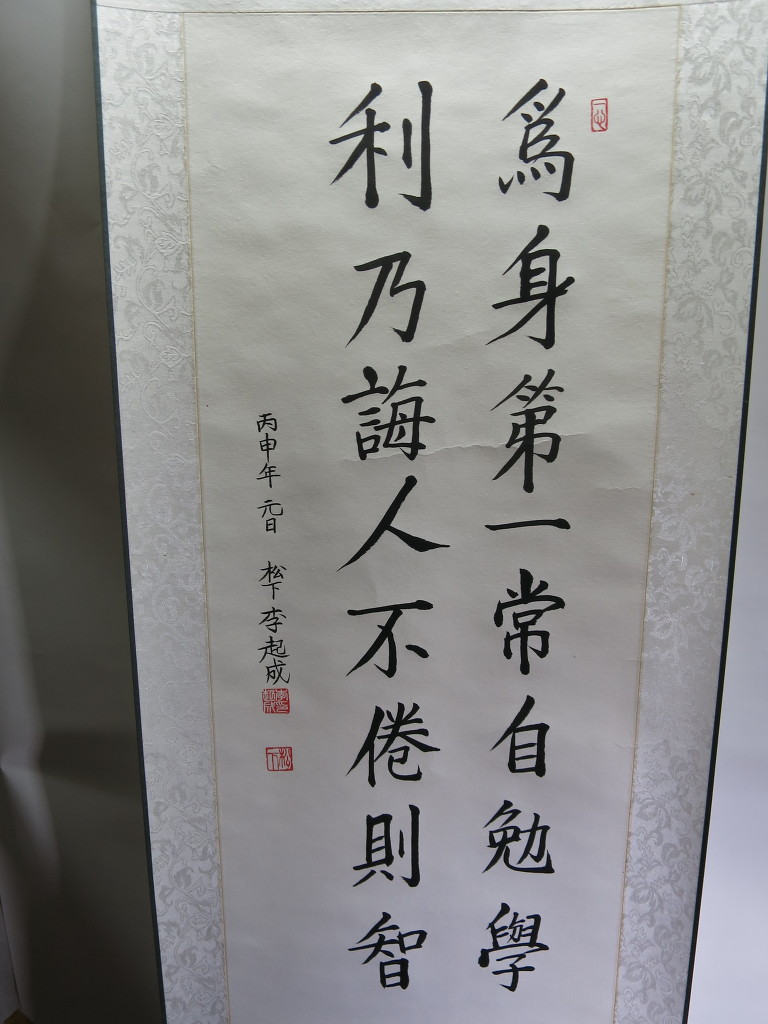 一心
爲身第一常自勉學
利乃誨人不倦則智
丙申年元日 松下李起成
松下